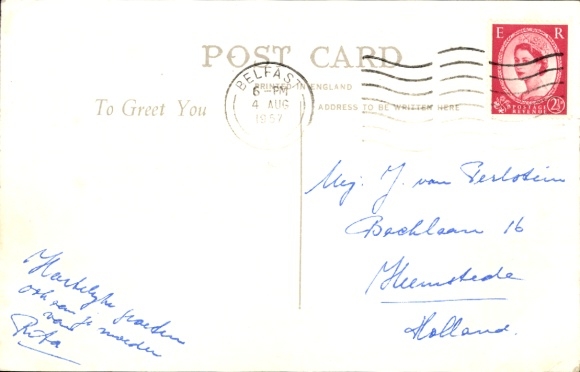 POST CARD
PRINTED IN ENGLAND
To Greet You
ADDRESS TO BE WRITTEN HERE
BELFAST
6-PM
4 AUG
1957
E R
POSTAGE
REVENUE
2½
Mej. J. van
Bachlaan 16
Heemstede
Holland.
Hartelijke groeten
ook aan je moeder
van
Rita